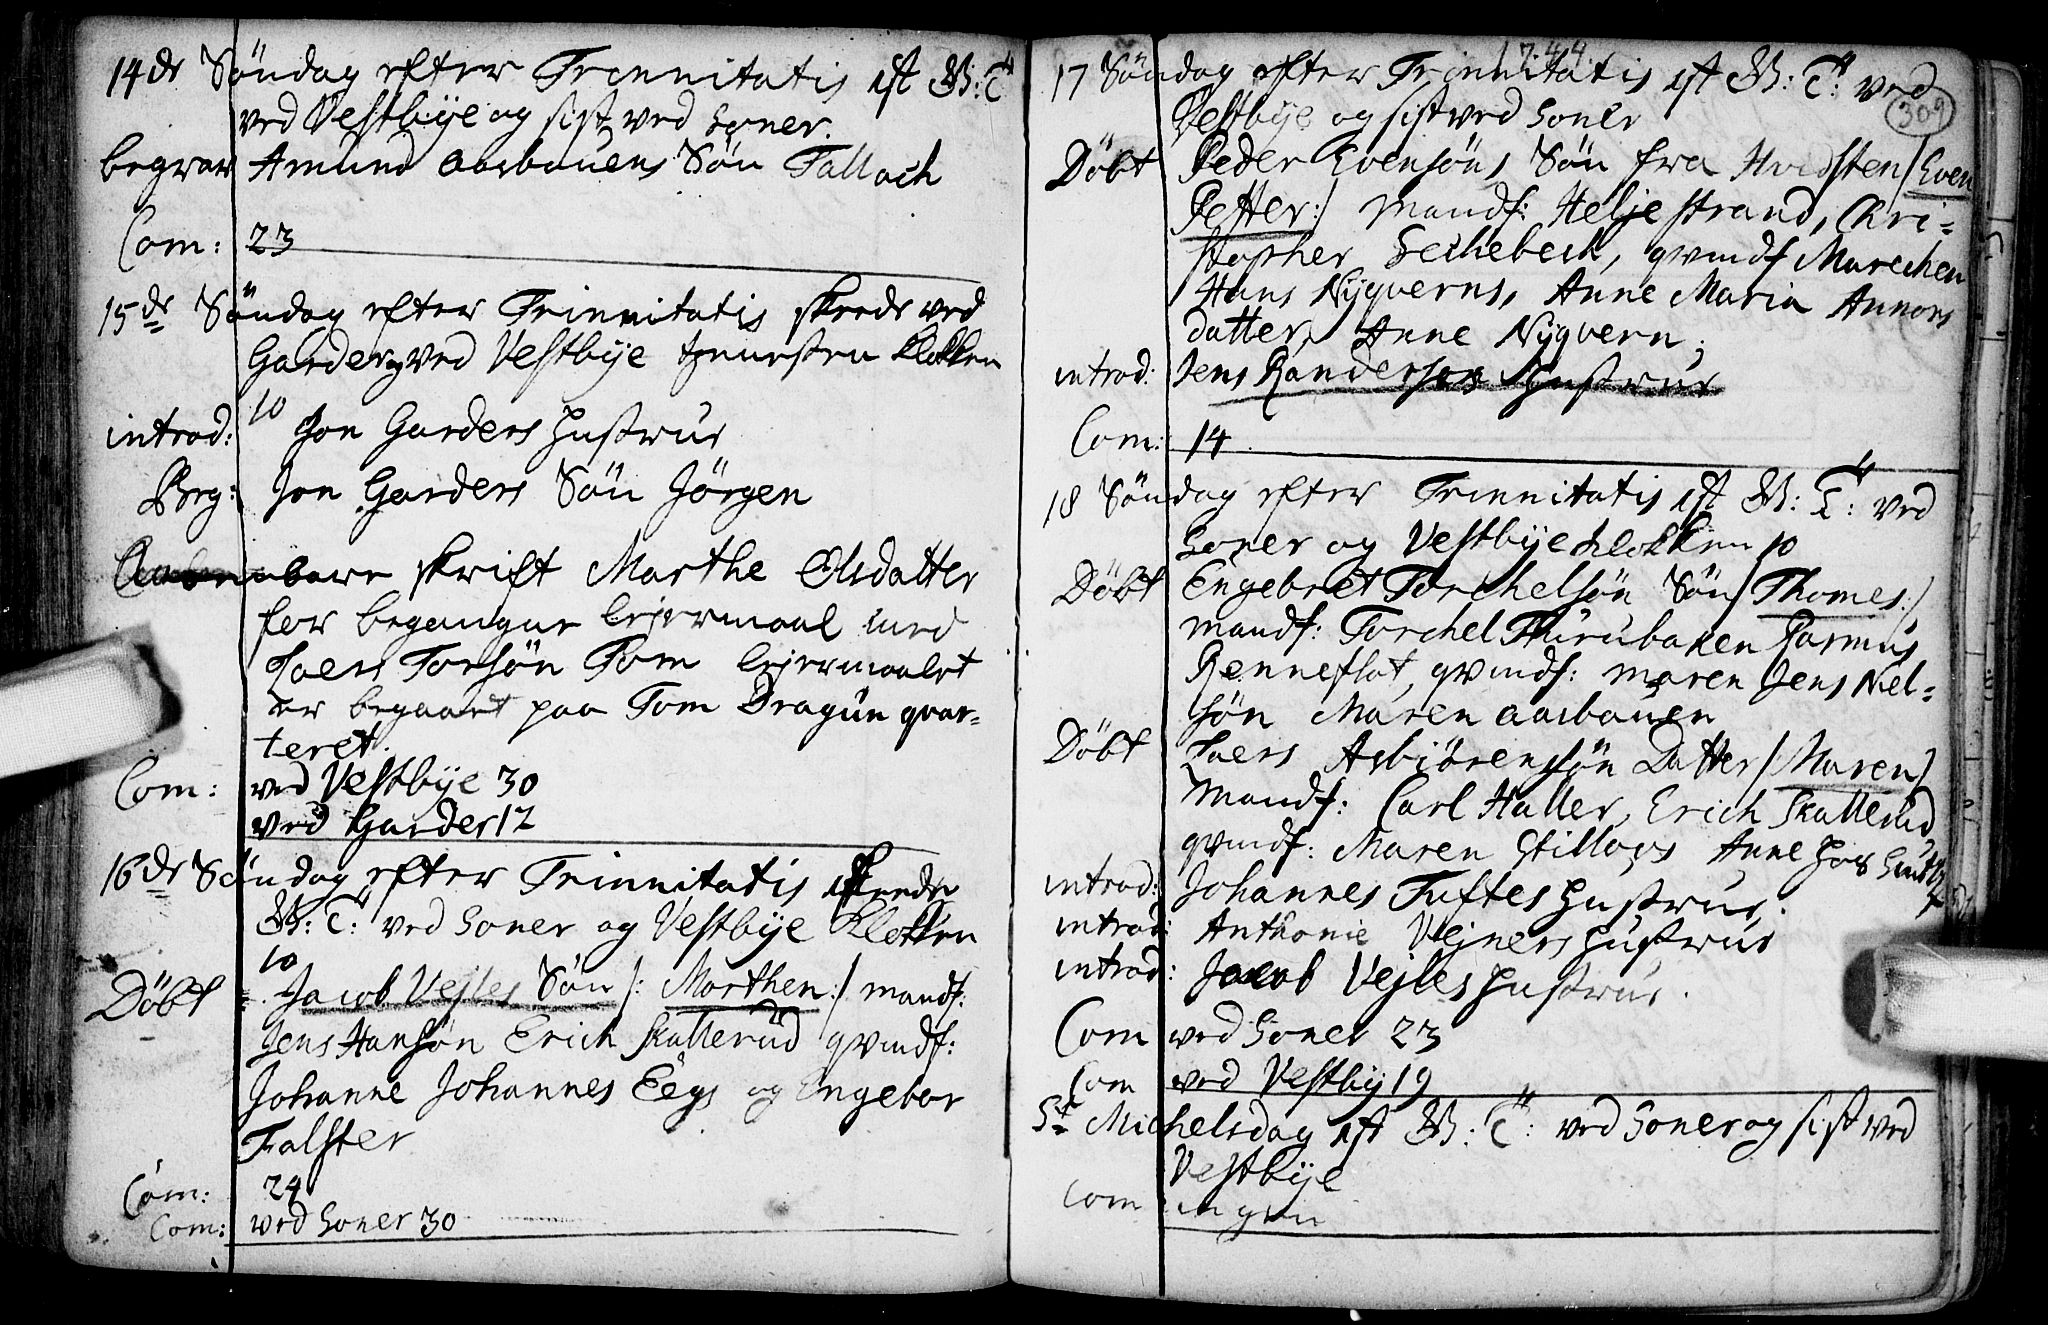 14de Söndag efter Trinnitatis est G: T:
ved Vestbÿe og sist ved Soner.
begrav Amund Aasbauens Sön Tallach
Com: 23
15de Söndag efter Trinnitatis skrede ved
Garder og ved Vestbÿe tienesten Klokken
10
introd: Jon Garders Hustrue
Beg: Jon Garders Sön Jörgen
Aabenabare skrift Marthe Olsdatter
for begangne leiermaal med
Laers Torsön Tom leiermaalet
er begaaet paa Tom Dragün qvar-
teret.
Com: ved Vestbÿe 30
ved Garder 12
16de Söndag efter Trinnitatis skrede
G: T: ved Soner og Vestbÿe Klokken
10
Döbt Jacob Vejles Sön /: Morthen :/ mandf:
Jens Hansön Erich Skallerud qvindf:
Johanne Johannes Eegs og Engebor
Falster
Com: 24
Com: ved Soner 30
1744
309
17 Söndag efter Trinnitatis est G: T: ved
Vestbÿe og sist ved Soner
Döbt Peder Evensöns Sön fra Hvidsten /: Even
Petter :/ mandf: Helje strand, Chri-
stopher Sechebeck, qvindf Marechen
Hans Nÿqverns, Anne Maria Annors
datter, Anne Nÿqvern;
introd: Jens Randersens Hustrue
Com: 14
18 Söndag efter Trinnitatis est G: T: ved
Soner og Vestbÿe Klokken 10
Döbt Engebret Torchelsön Sön /: Thomes :/
mandf: Torchel Thurubaken Rasmus
Renneflot, qvindf: maren Jens Niel-
sön Maren aasbauen
Döbt Laers Asbiörensön Datter /: Maren :/
Mandf: Carl Haller, Erich Skallerud
qvindf: Maren Gtillovs Anne Hos
introd: Johannes Tuftes Hustrue,
introd: Anthonie Vejners Hustrue
introd: Jacob Vejles Hustrue.
Com ved Soner 23
Com ved Vestby 19
St Michelsdag est G: T: ved Soner og sist ved
Vestbÿe
Com ingen